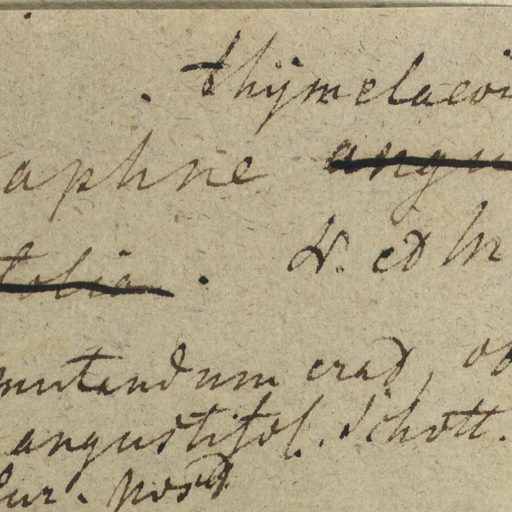 thymelaeoi
aphne angu
folia. V. et M
mutandum erat, ob
angustifol. Schott.